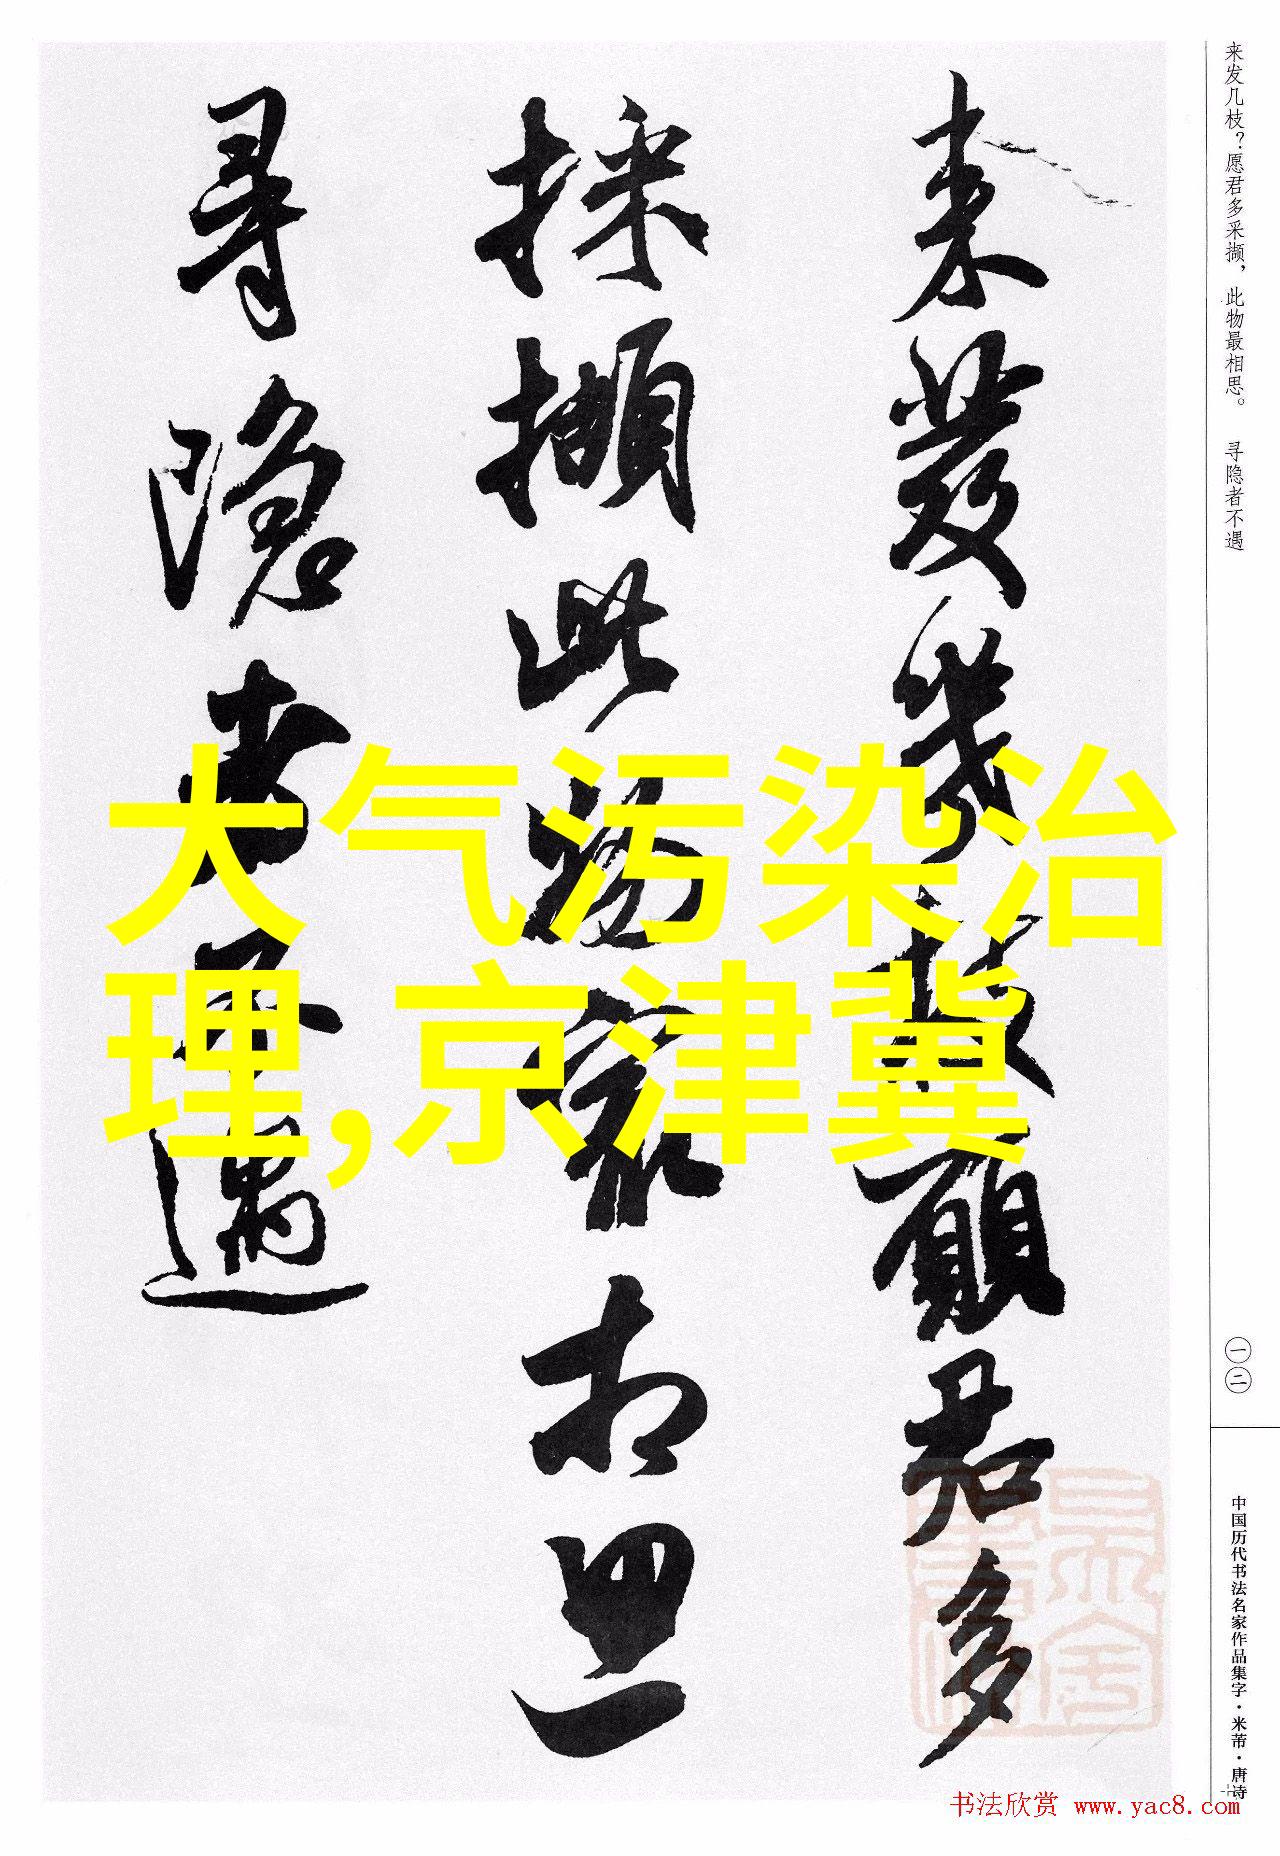 来发几枝？愿君多采撷，此物最相思。 寻隐者不遇
一二
中国历代书法名家作品集字·米芾·唐诗
来發幾枝願君多
採撷此物最相思
尋隐者不遇
大气污染治
理,京津冀
书法欣赏 www.yac8.com